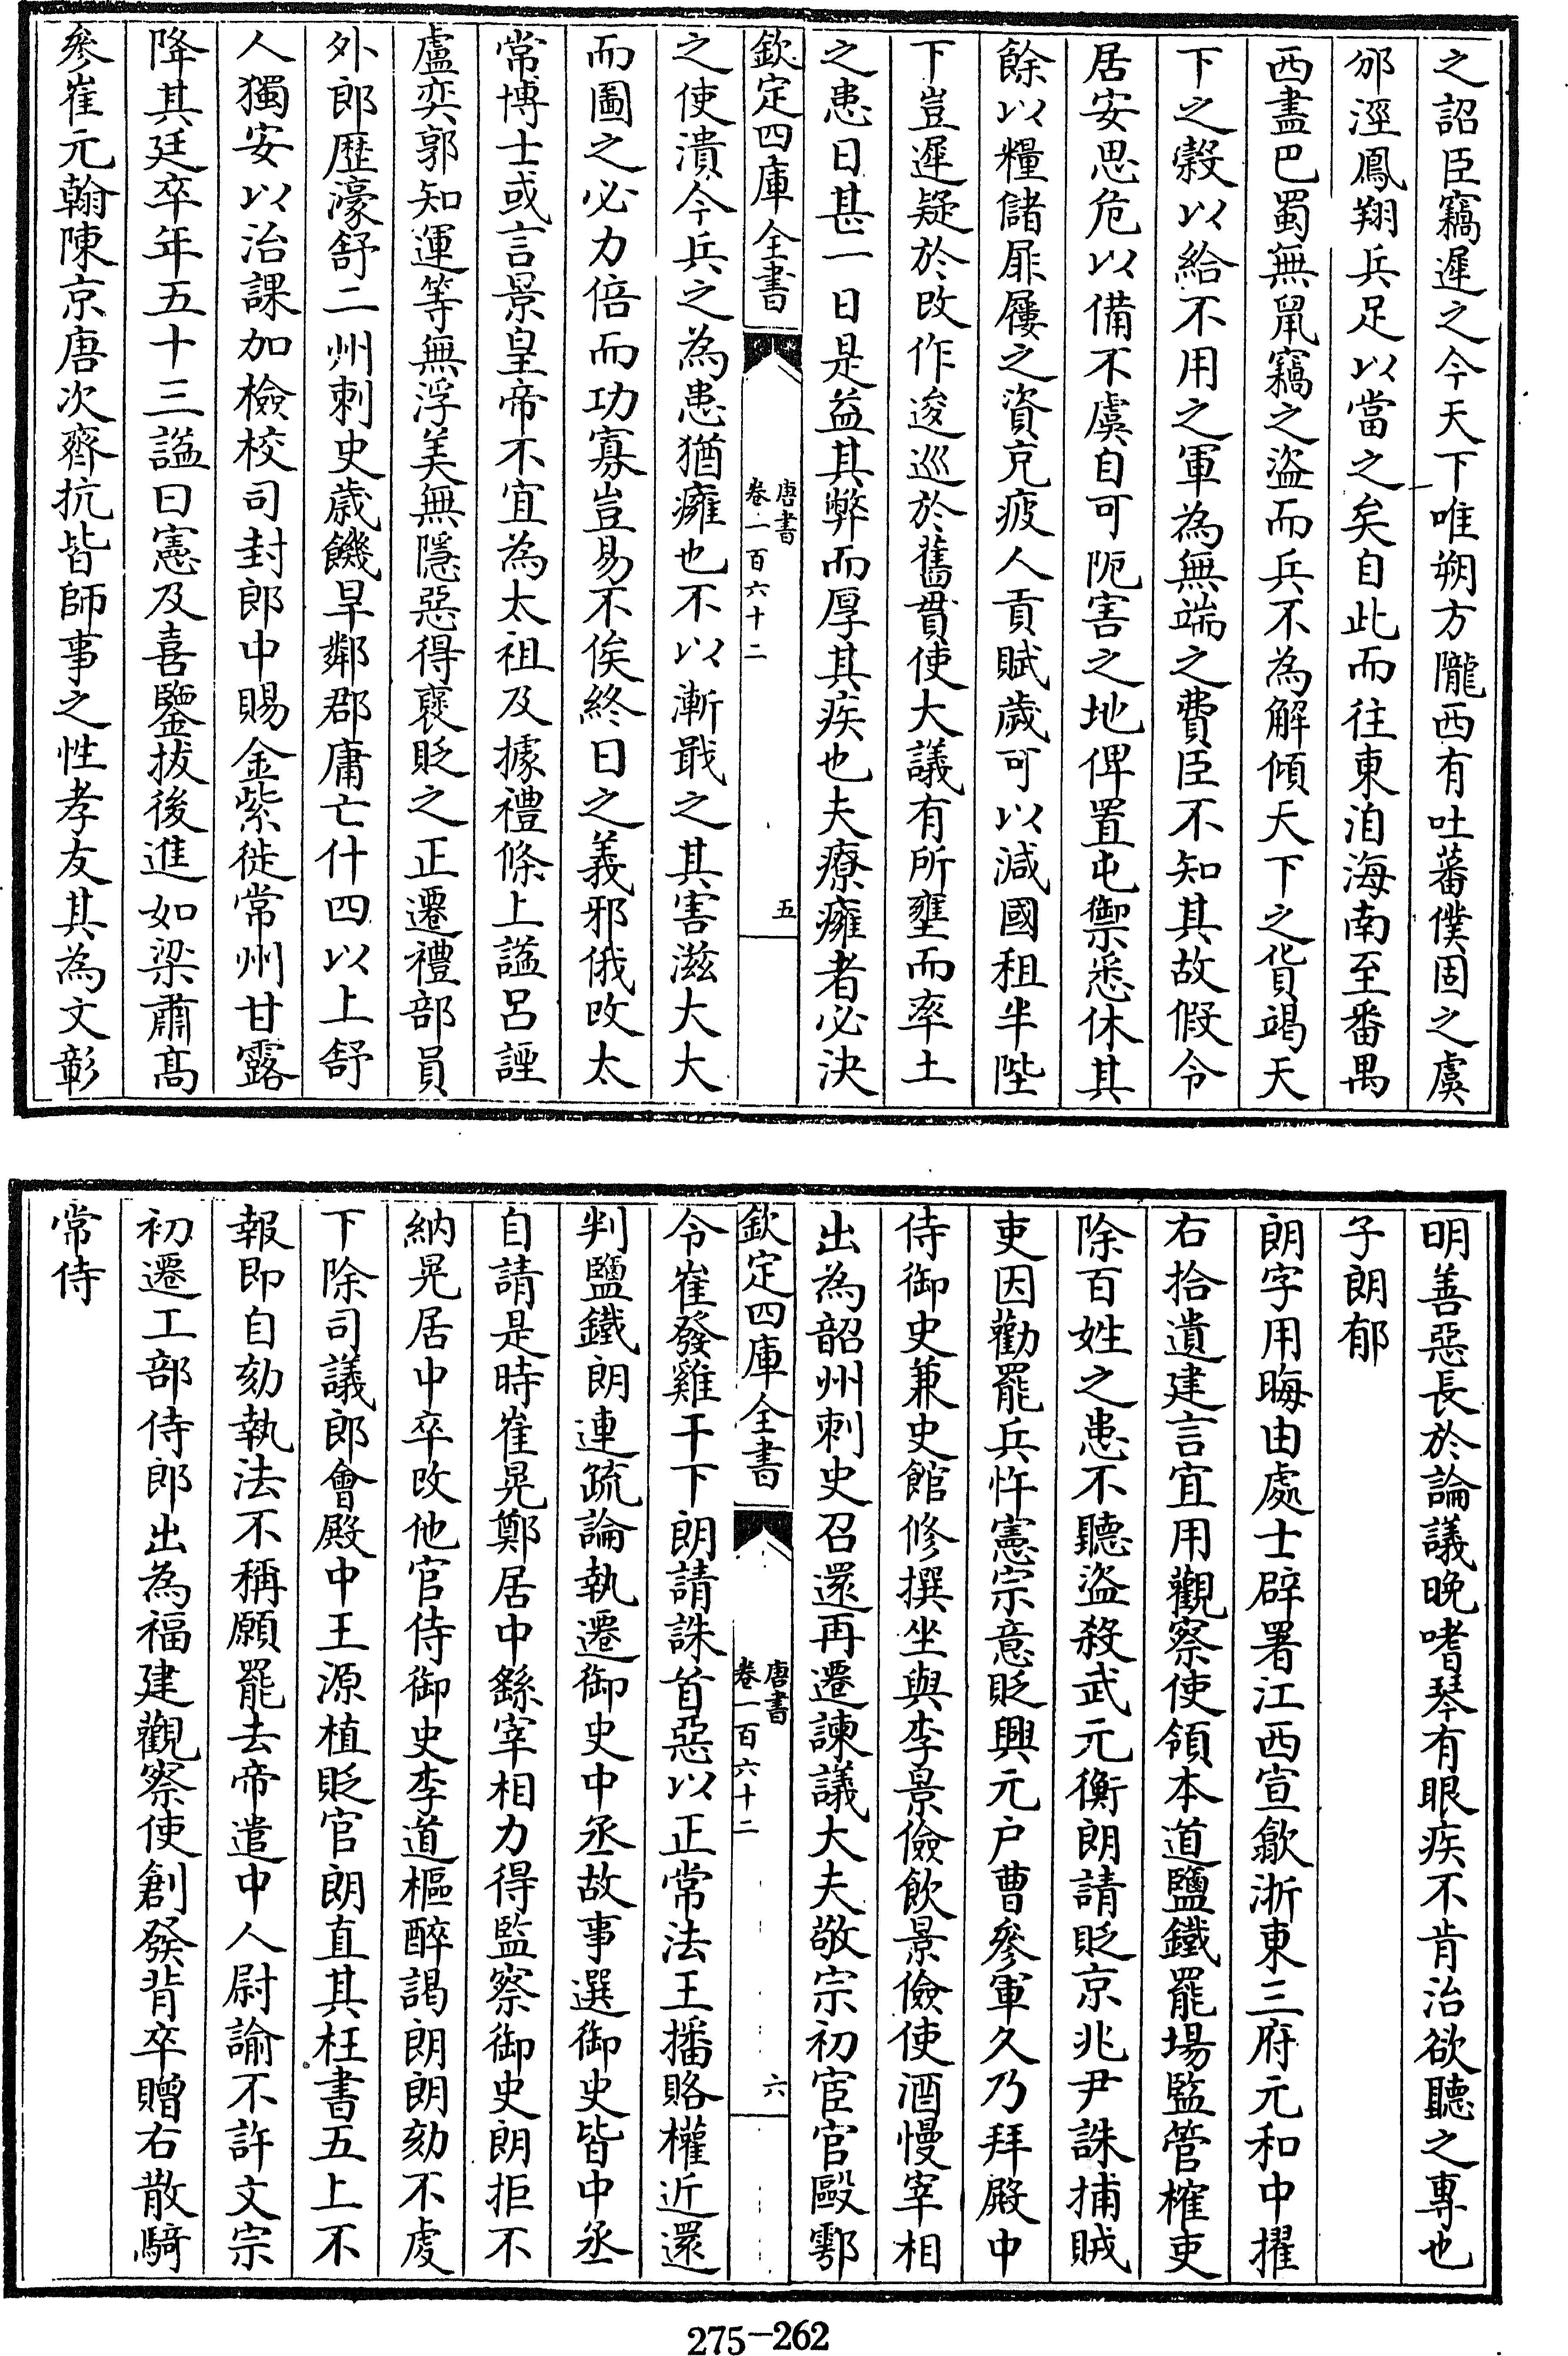 之詔臣竊遲之今天下唯朔方隴西有吐蕃僕固之虞
邠涇鳳翔兵足以當之矣自此而往東洎海南至番禺
西盡巴蜀無鼠竊之盜而兵不為解傾天下之貨竭天
下之穀以給不用之軍為無端之費臣不知其故假令
居安思危以備不虞自可阨害之地俾置屯禦悉休其
餘以糧儲屝屨之資充疲人貢賦歲可以減國租半陛
下豈遲疑於改作逡巡於舊貫使大議有所壅而率土
之患日甚一日是益其弊而厚其疾也夫療癰者必決
欽定四庫全書
唐書
卷一百六十二
五
之使潰今兵之為患猶癰也不以漸戢之其害滋大大
而圖之必力倍而功寡豈易不俟終日之義邪俄改太
常博士或言景皇帝不宜為太祖及據禮條上諡呂諲
盧奕郭知運等無浮美無隱惡得襃貶之正遷禮部員
外郎歷濠舒二州刺史歲饑旱鄰郡庸亡什四以上舒
人獨安以治課加檢校司封郎中賜金紫徙常州甘露
降其廷卒年五十三諡曰憲及喜鑒拔後進如梁肅高
參崔元翰陳京唐次齊抗皆師事之性孝友其為文彰
明善惡長於論議晚嗜琴有眼疾不肯治欲聽之專也
子朗郁
朗字用晦由處士辟署江西宣歙浙東三府元和中擢
右拾遺建言宜用觀察使領本道鹽鐵罷場監管榷吏
除百姓之患不聽盜殺武元衡朗請貶京兆尹誅捕賊
吏因勸罷兵忤憲宗意貶興元户曹參軍久乃拜殿中
侍御史兼史館修撰坐與李景儉飲景儉使酒慢宰相
出為韶州刺史召還再遷諫議大夫敬宗初宦官毆鄠
欽定四庫全書
唐書
卷一百六十二
六
令崔發雞干下朗請誅首惡以正常法王播賂權近還
判鹽鐵朗連疏論執遷御史中丞故事選御史皆中丞
自請是時崔晃鄭居中繇宰相力得監察御史朗拒不
納晃居中卒改他官侍御史李道樞醉謁朗朗劾不虔
下除司議郎會殿中王源植貶官朗直其枉書五上不
報即自劾執法不稱願罷去帝遣中人尉諭不許文宗
初遷工部侍郎出為福建觀察使創發背卒贈右散騎
常侍
275-262